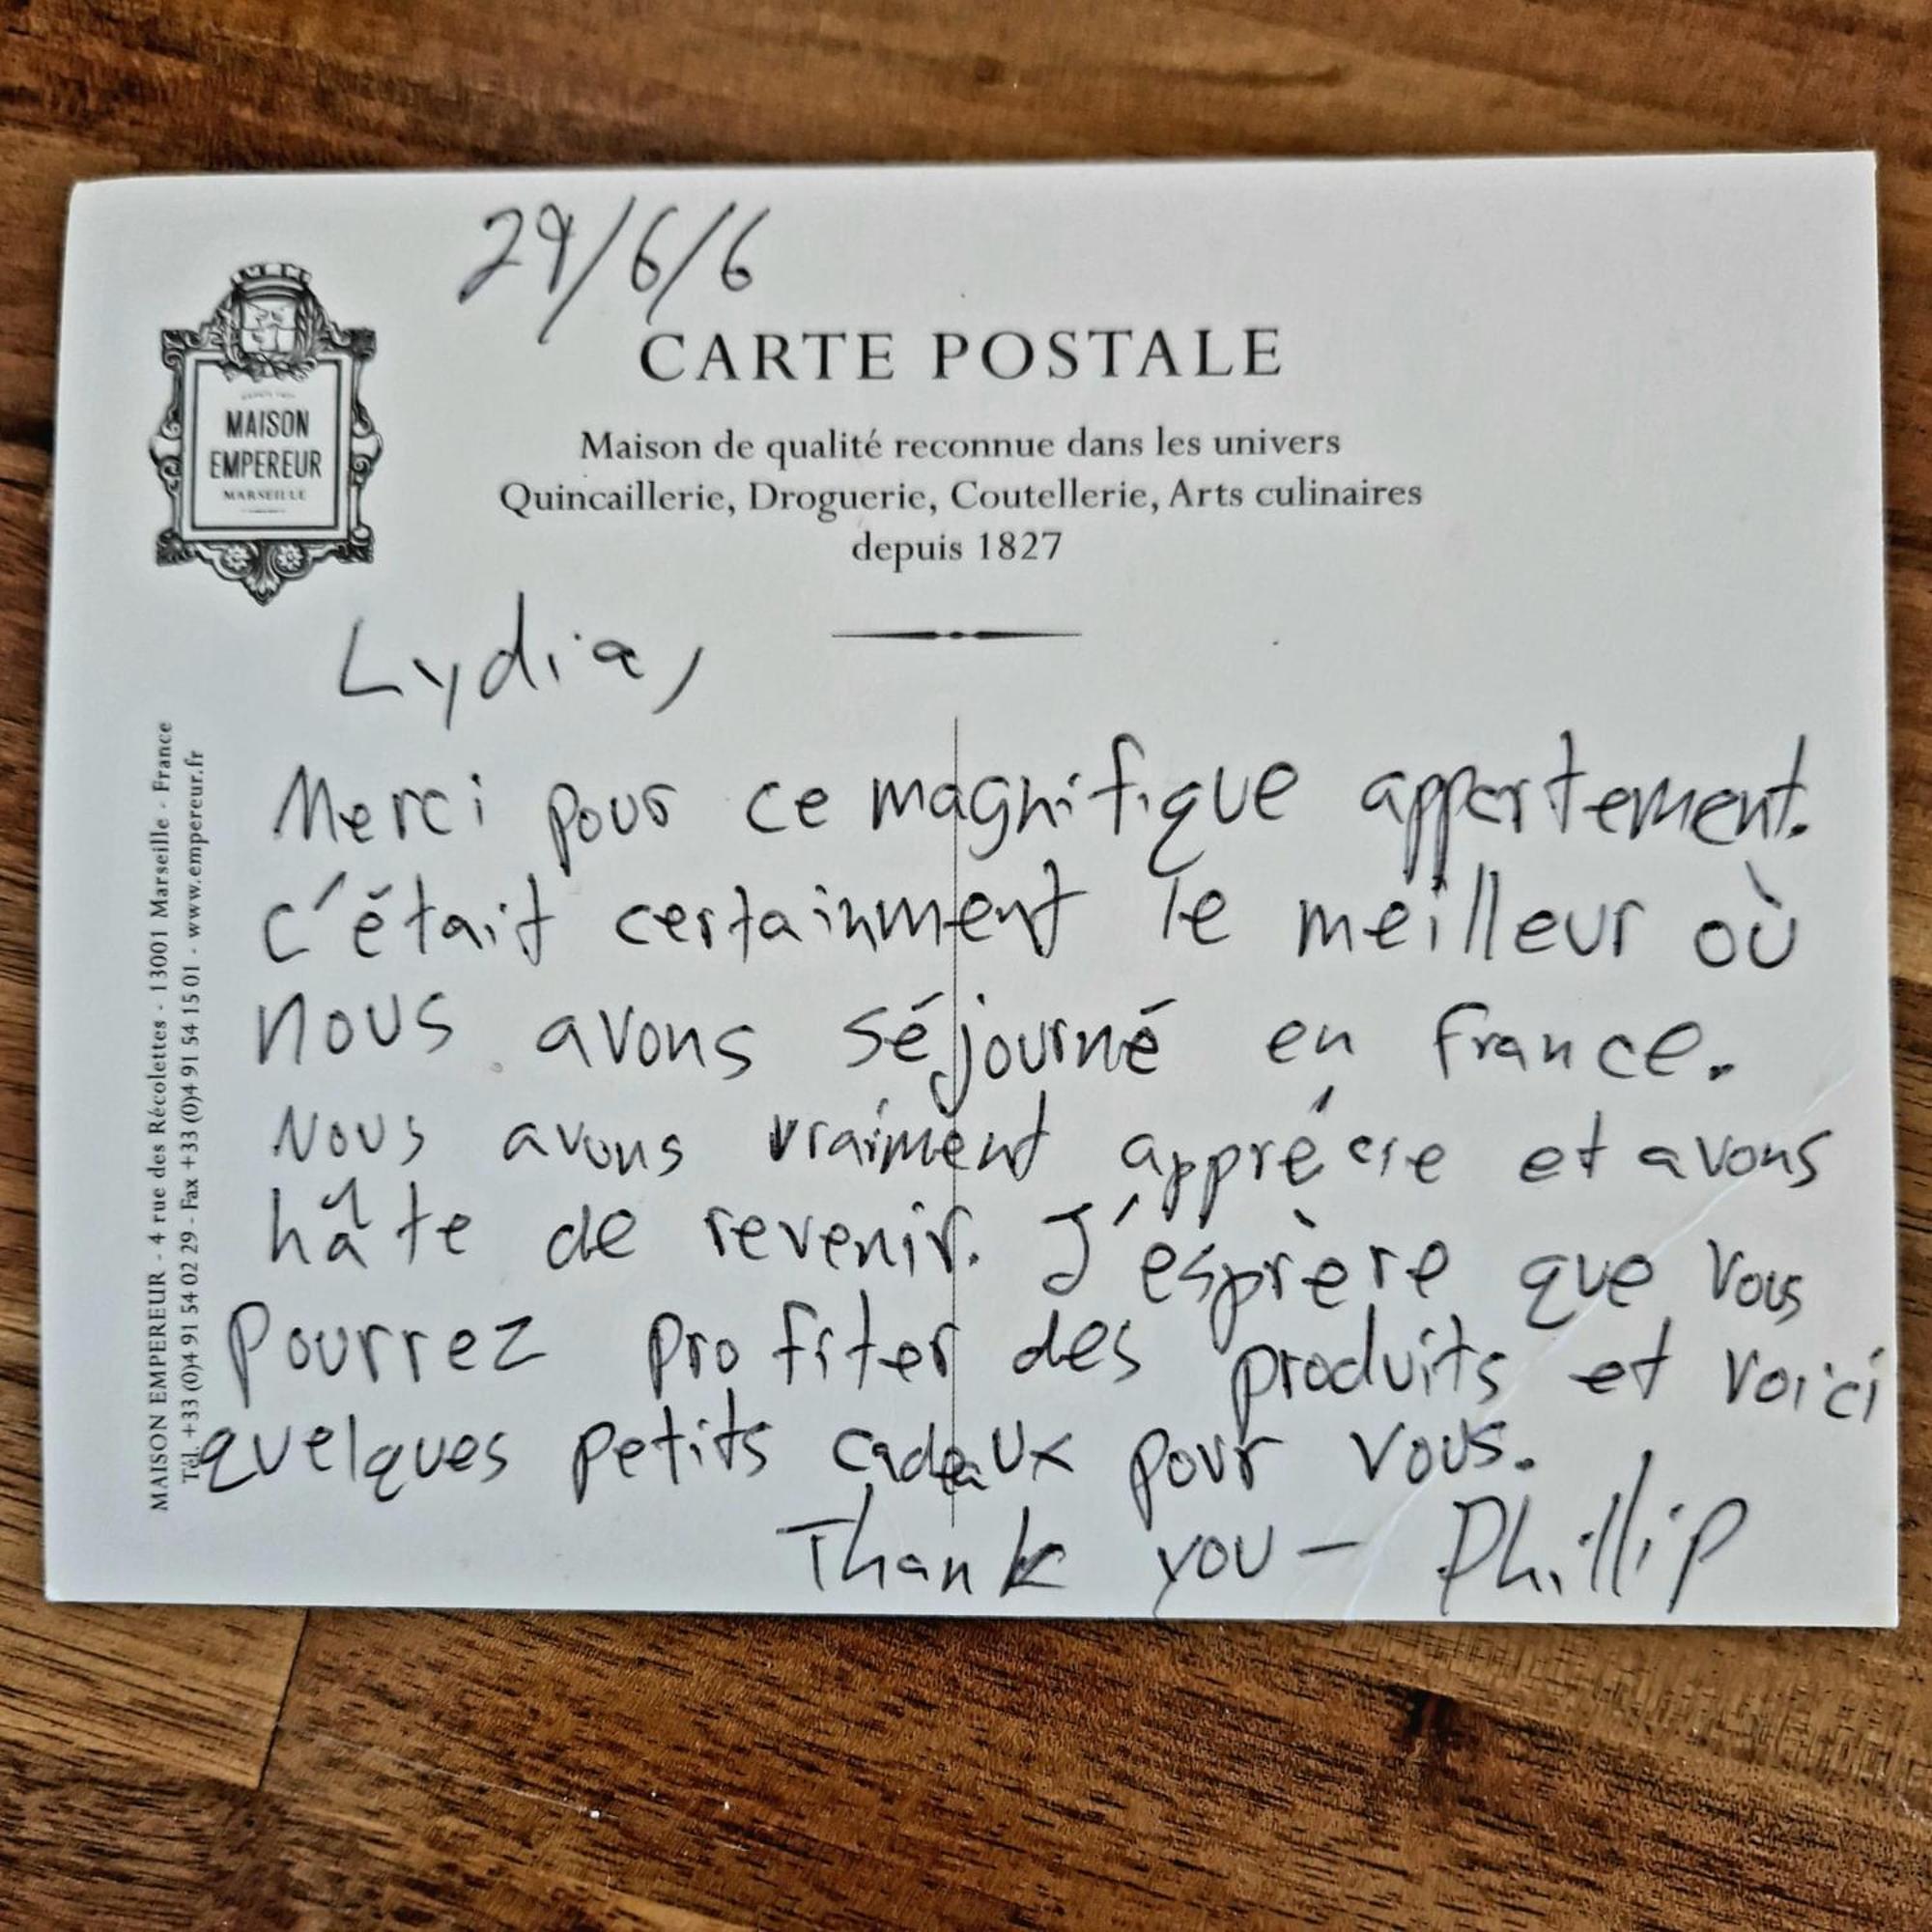 29/6/6
MAISON
EMPEREUR
MARSEILLE
CARTE POSTALE
Maison de qualité reconnue dans les univers
Quincaillerie, Droguerie, Coutellerie, Arts culinaires
depuis 1827
Lydia,
Merci pour ce magnifique appartement.
C'était certainment le meilleur où
nous avons séjourné en france.
Nous avons vraiment apprécié et avons
hâte de revenir. J'esprère que vous
pourrez profiter des produits et voici
quelques petits cadeaux pour vous.
Thank you — Phillip
MAISON EMPEREUR - 4 rue des Récolettes - 13001 Marseille - France
Tél. +33 (0)4 91 54 02 29 - Fax +33 (0)4 91 54 15 01 - www.empereur.fr